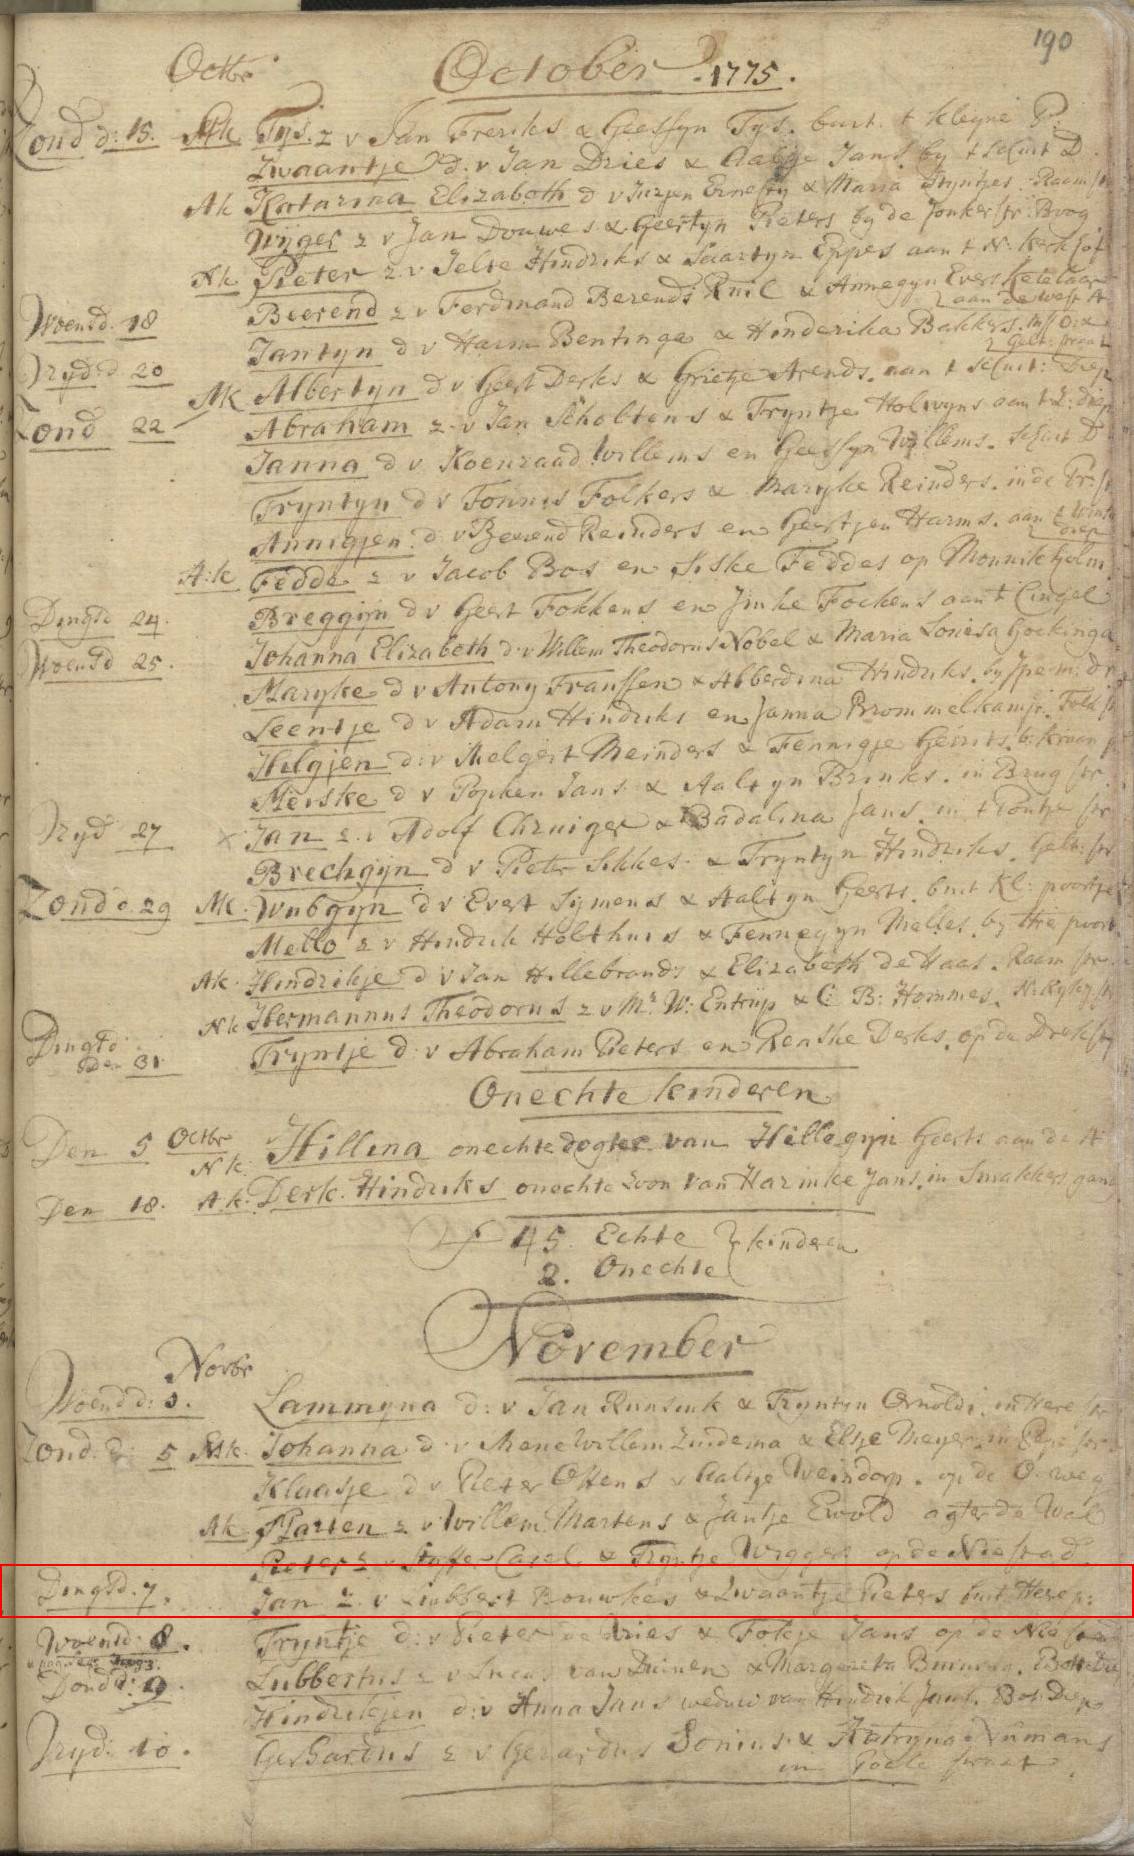 190
Octbr October 1775.
Zond d: 15. Ak Tys. z v Jan Freriks & Geessyn Tys. buit. t kleyne P:
Zwaantje d. v Jan Dries & Aaltje Jans. by t schuit D.
Ak Katarina Elizabeth d v Jurjen Ernesty & Maria Styntjes. Raam str
Wijger z v Jan Douwes & Geertyn Pieters by de Jonker str: Boog
Nk Pieter z v Jelte Hindriks & Saartyn Eppes aan t N: kerkhof
Woensd. 18 Beerend z v Ferdinand Berends Ruil & Annegyn Evers Ketelaar
aan de west
Jantyn d v Harm Bentinga & Hinderika Bakkers.
Vryd: d 20 Albertyn d v Geert Derks & Grietje Arends. aan t schuit: Diep
Zond 22 Mk Abraham z. v Jan Scholtens & Tryntje Holwyns aan t Z: diep
Janna d v Koenraad Willems en Geessyn Willems. schuit D
Tryntyn d v Tonnis Folkers & Maryke Reinders. in de Pr: st
Annigjen. d v Beerend Reinders en Geertjen Harms. aan t Wins
diep
A:k Fedde z v Jacob Bos en Siske Feddes op Monnikholm
Dingsd 24. Breggijn d v Geert Fokkens en Jmke Fockens aan t Cingel
Woensd 25. Johanna Elizabeth d: v Willem Theodorus Nobel & Maria Louisa Gockinga
Maryke d v Antony Franssen & Abberdina Hindriks.
Leentje d v Adam Hindriks en Janna Brommelkamp. Folk st
Hilgjen d: v Melgert Meinders & Fennigje Gerrits. b: kraan
Meiske d v Popken Jans & Aaltyn Brinks. in Brug str.
Vryd 27 x Jan z. v Adolf Chruiger & Badalina Jans. in t Pontje str
Brechgijn d v Pieter Sikkes. & Tryntyn Hindriks. Gelk: str
Zond d. 29 Mk. Wubgyn d v Evert Symens & Aaltyn Geerts. buit Kl: poortje
Mello z v Hindrik Holthuis & Fennegyn Melles. by Hre poort
Ak. Hindrikje d v Jan Hillebrands & Elizabeth de Haas. Raam str
Nk Hermannus Theodorus z v Mr. W: Entrup & C: B: Hommes.
Dingsd. den 31. Tryntje d: v Abraham Pieters en Renske Derks. op de Drekst
Onechte kinderen
Den 5 Octbr Nk: Hillina onechte dogter van Hillegijn Geerts aan de
Den 18. A.k. Derk. Hindriks onechte zoon van Harmke Jans. in Smakkers gang
45. Echte kinderen
2. Onechte
November
Novbr
Woensd d: 1. Lammigna d: v Jan Runsink & Tryntyn Arnoldi. in Here str
Zond. d: 5 Ak. Johanna d: v Mene Willem Zuidema & Eltje Meyer.
Klaasje d v Pieter Ottens & Aaltje Weindorp. op de O: weg
Ak Marten z v Willem Martens & Jantje Ewold agter de Wal
Pieter z v Styffer Casel & Tryntje Wigger op de Niestad
Dingsd. 7. Jan z. v Lubbert Bouwkes & Zwaantje Pieters buit Here p:
Woensd: 8. Tryntje d: v Pieter de Vries & Fokje Jans op de Nie
Dond d: 9. Lubbertus z v Lucas van Duinen & Margareta Buining. Bot Diep
Hindrikjen d: v Anna Jans weduw van Hindrik Jans. Bot: Diep
Vryd: 10. Gerhardus z v Gerardus Sonius & Katryna Numans
in Poele straat.